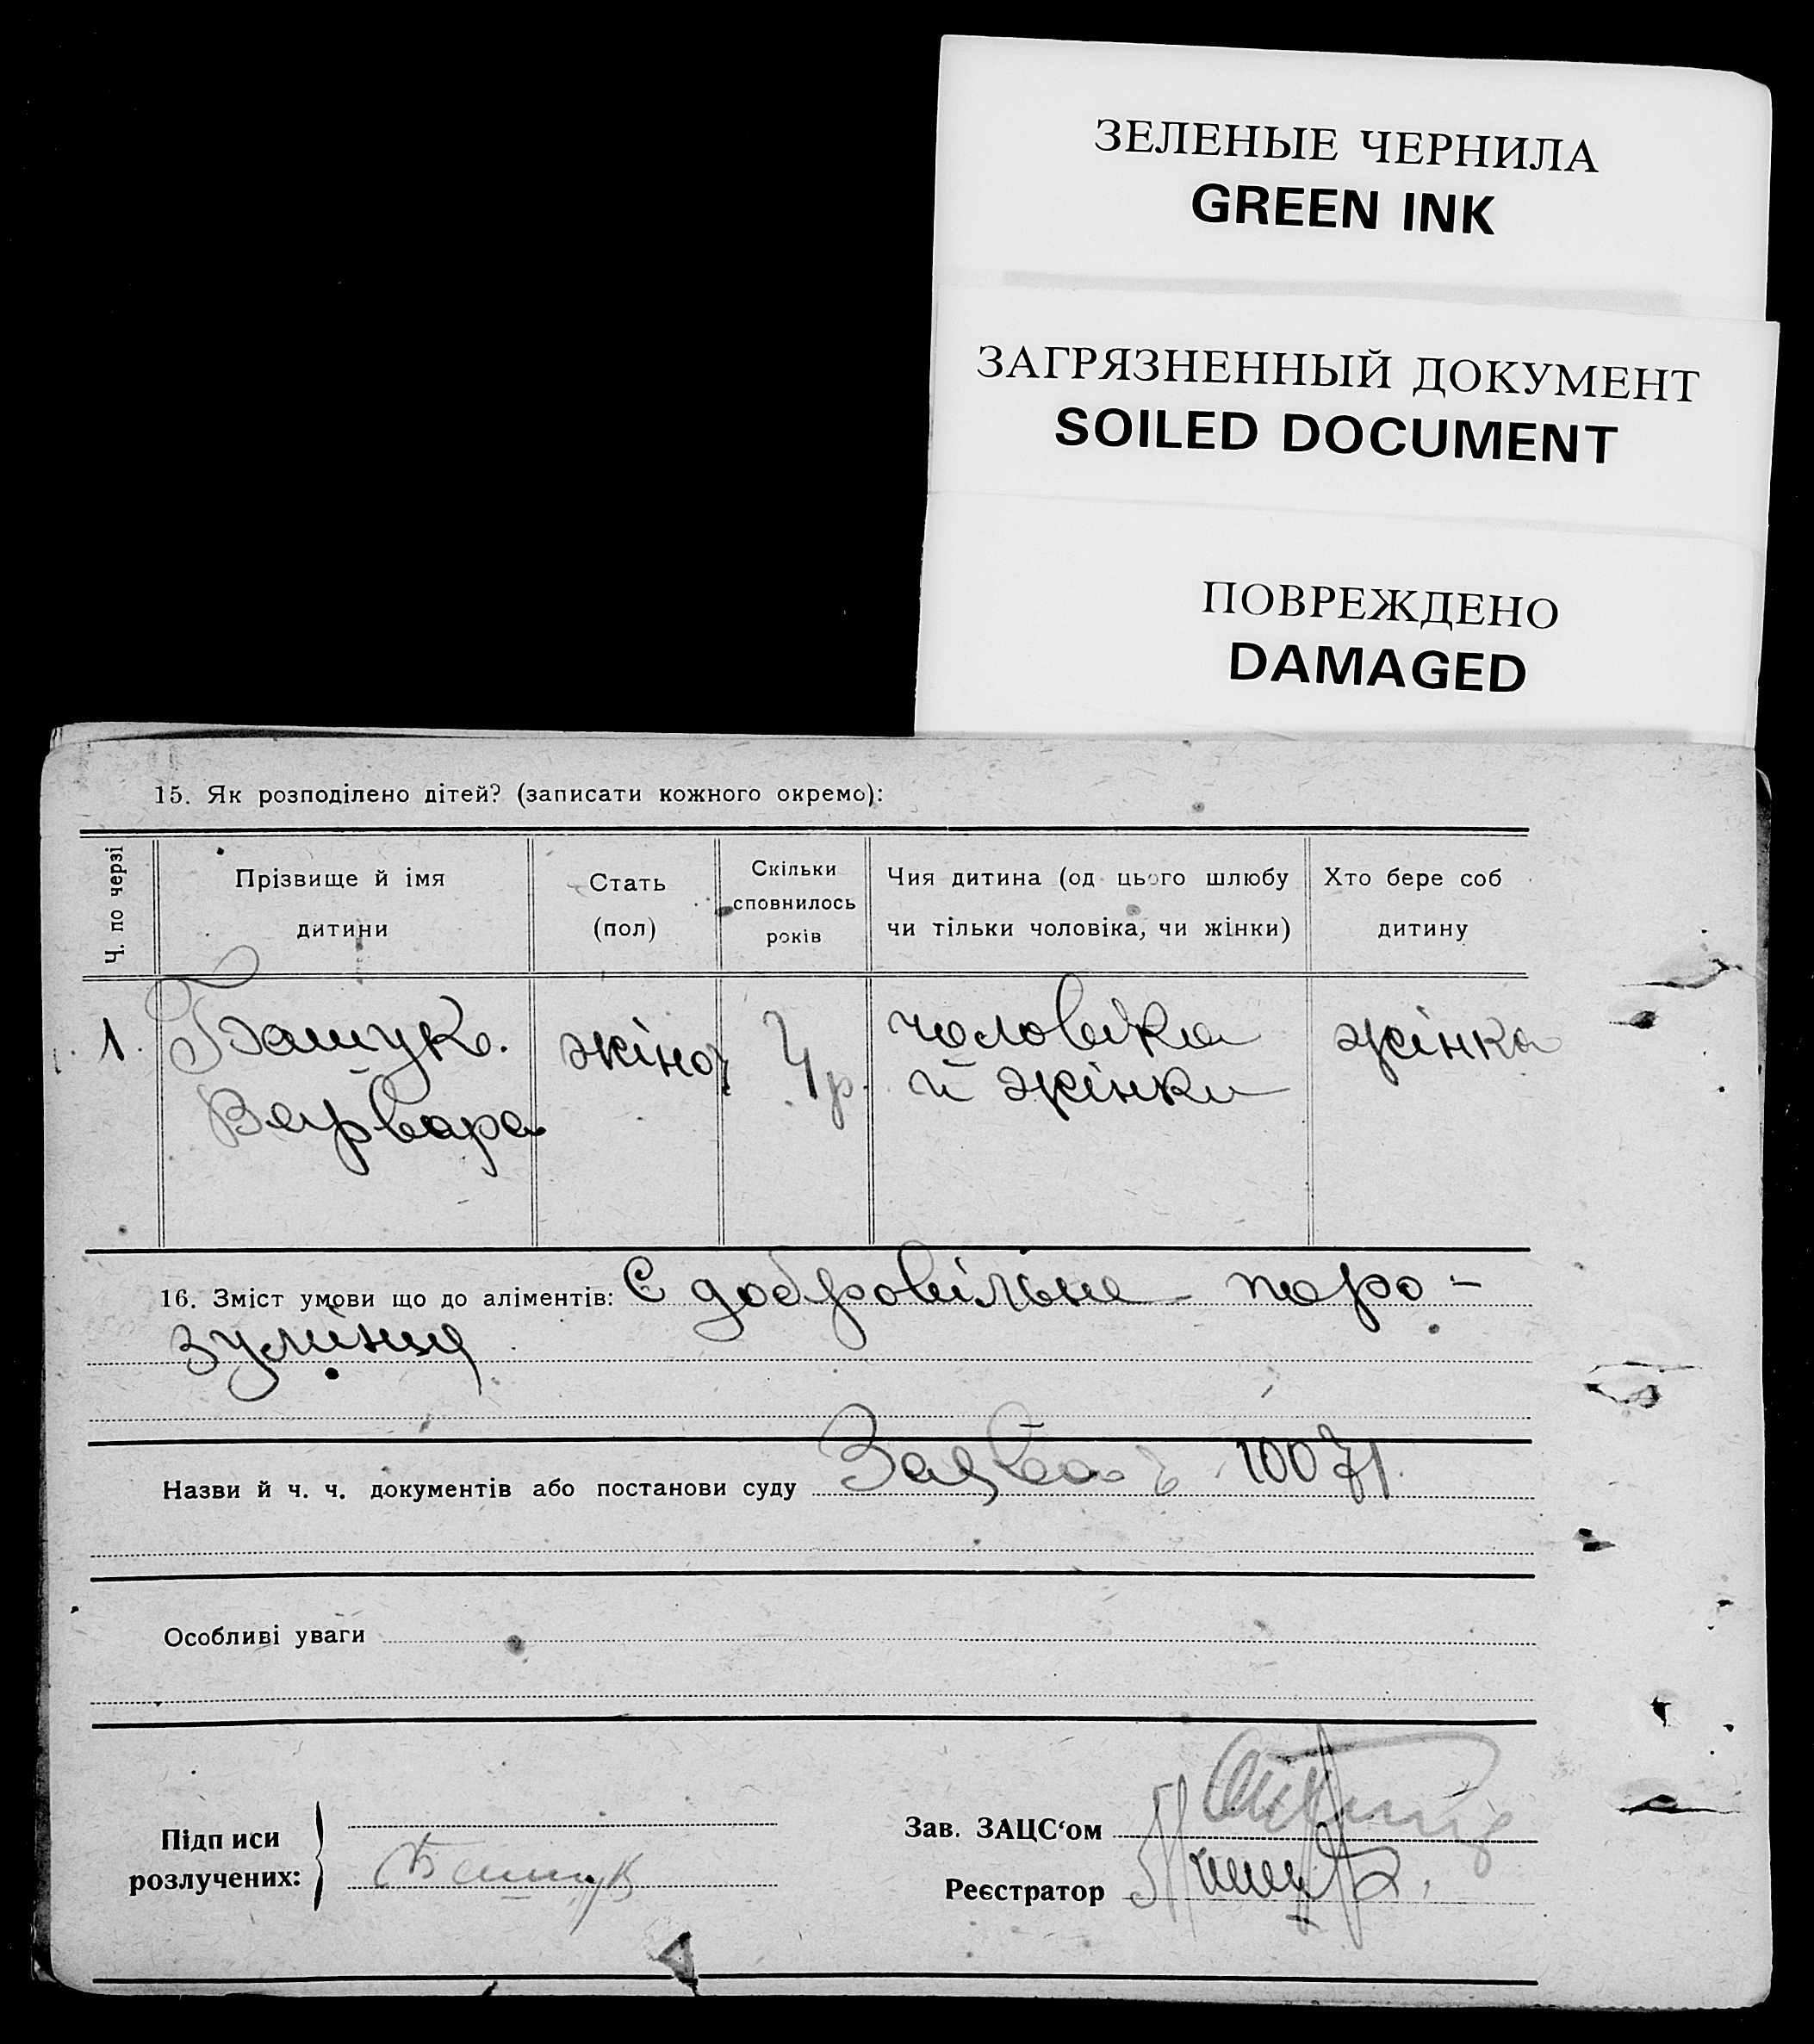 ЗЕЛЕНЫЕ ЧЕРНИЛА
GREEN INK
ЗАГРЯЗНЕННЫЙ ДОКУМЕНТ
SOILED DOCUMENT
ПОВРЕЖДЕНО
DAMAGED
15. Як розподілено дітей? (записати кожного окремо):
Ч. по черзі
Прізвище й імя
дитини
Стать
(пол)
Скільки
сповнилось
років
Чия дитина (од цього шлюбу
чи тільки чоловіка, чи жінки)
Хто бере соб
дитину
1.
Башук.
Варвара
жіноч
4 р.
чоловіка
й жінки
жінка
16. Зміст умови що до аліментів: Є добровільне поро-
зуміння
Назви й ч. ч. документів або постанови суду Заява ч 10071
Особливі уваги
Підписи
розлучених:
Башук
Зав. ЗАЦС‘ом
Реєстратор